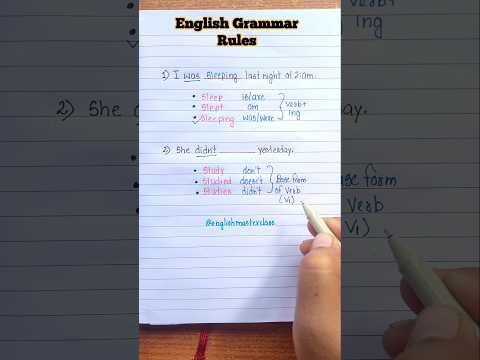 English Grammar
Rules
1) I was sleeping last night at 2:am.
• Sleep is/are
• Slept am
• Sleeping was/were
verb+
ing
2) She didn't ______ yesterday.
• Study don't
• Studied doesn't
• Studies didn't
Base form
of verb
(V1)
@englishmasterclass
2) She d
ase form
verb
(V1)